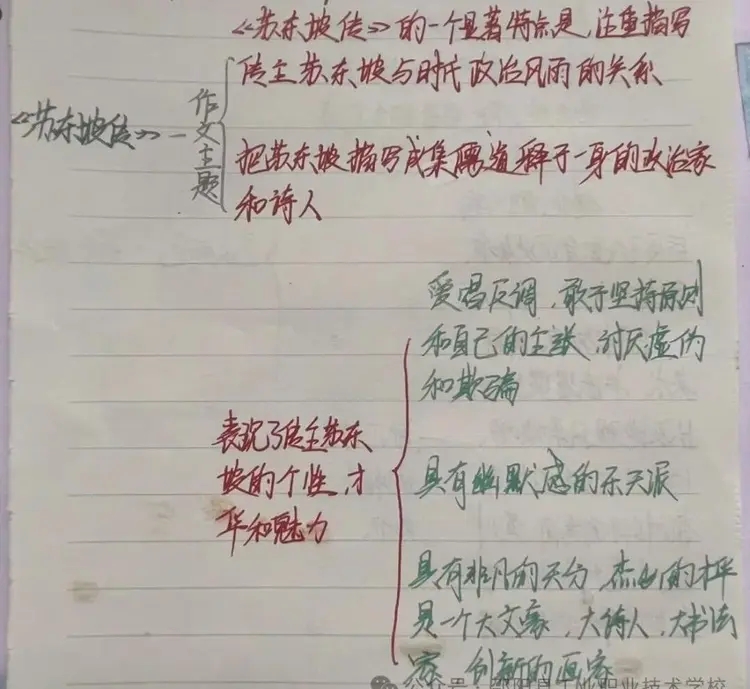 《苏东坡传》的一个显著特点是,注重描写
传主苏东坡与时代政治风雨的关系
《苏东坡传》—
作文主题
把苏东坡描写成集儒道释于一身的政治家
和诗人
表现了传主苏东
坡的个性,才
华和魅力
爱唱反调,敢于坚持原则
和自己的主张,讨厌虚伪
和欺骗
具有幽默感的乐天派
具有非凡的天分,杰出的才
是一个大文豪,大诗人,大书法
家,创新的画家
公众号·邵阳县工业职业技术学校